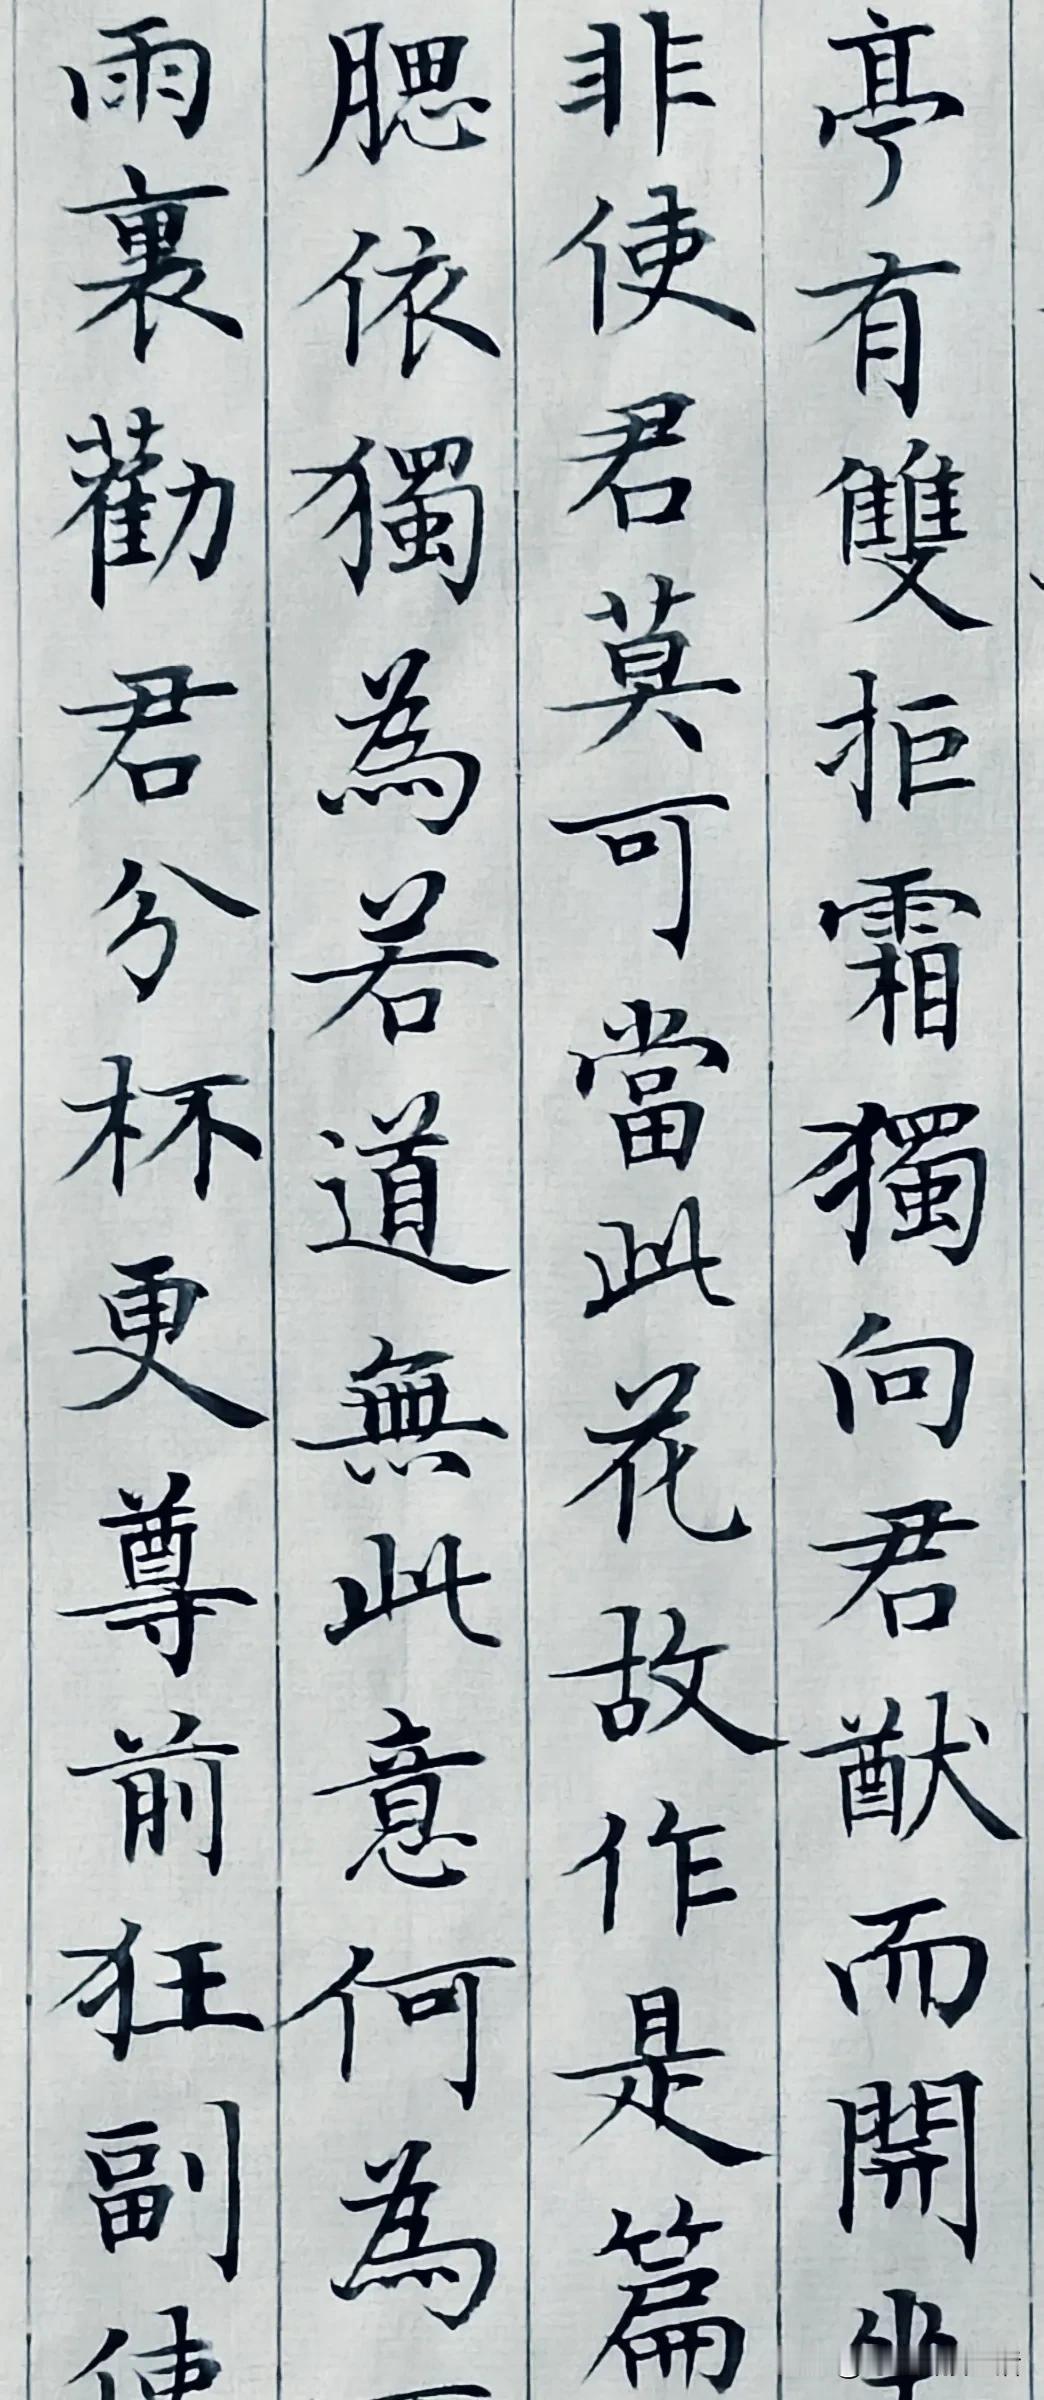 亭有雙拒霜獨向君猷而開坐
非使君莫可當此花故作是篇
腮依獨為若道無此意何為
雨裏勸君分杯更尊前狂副使